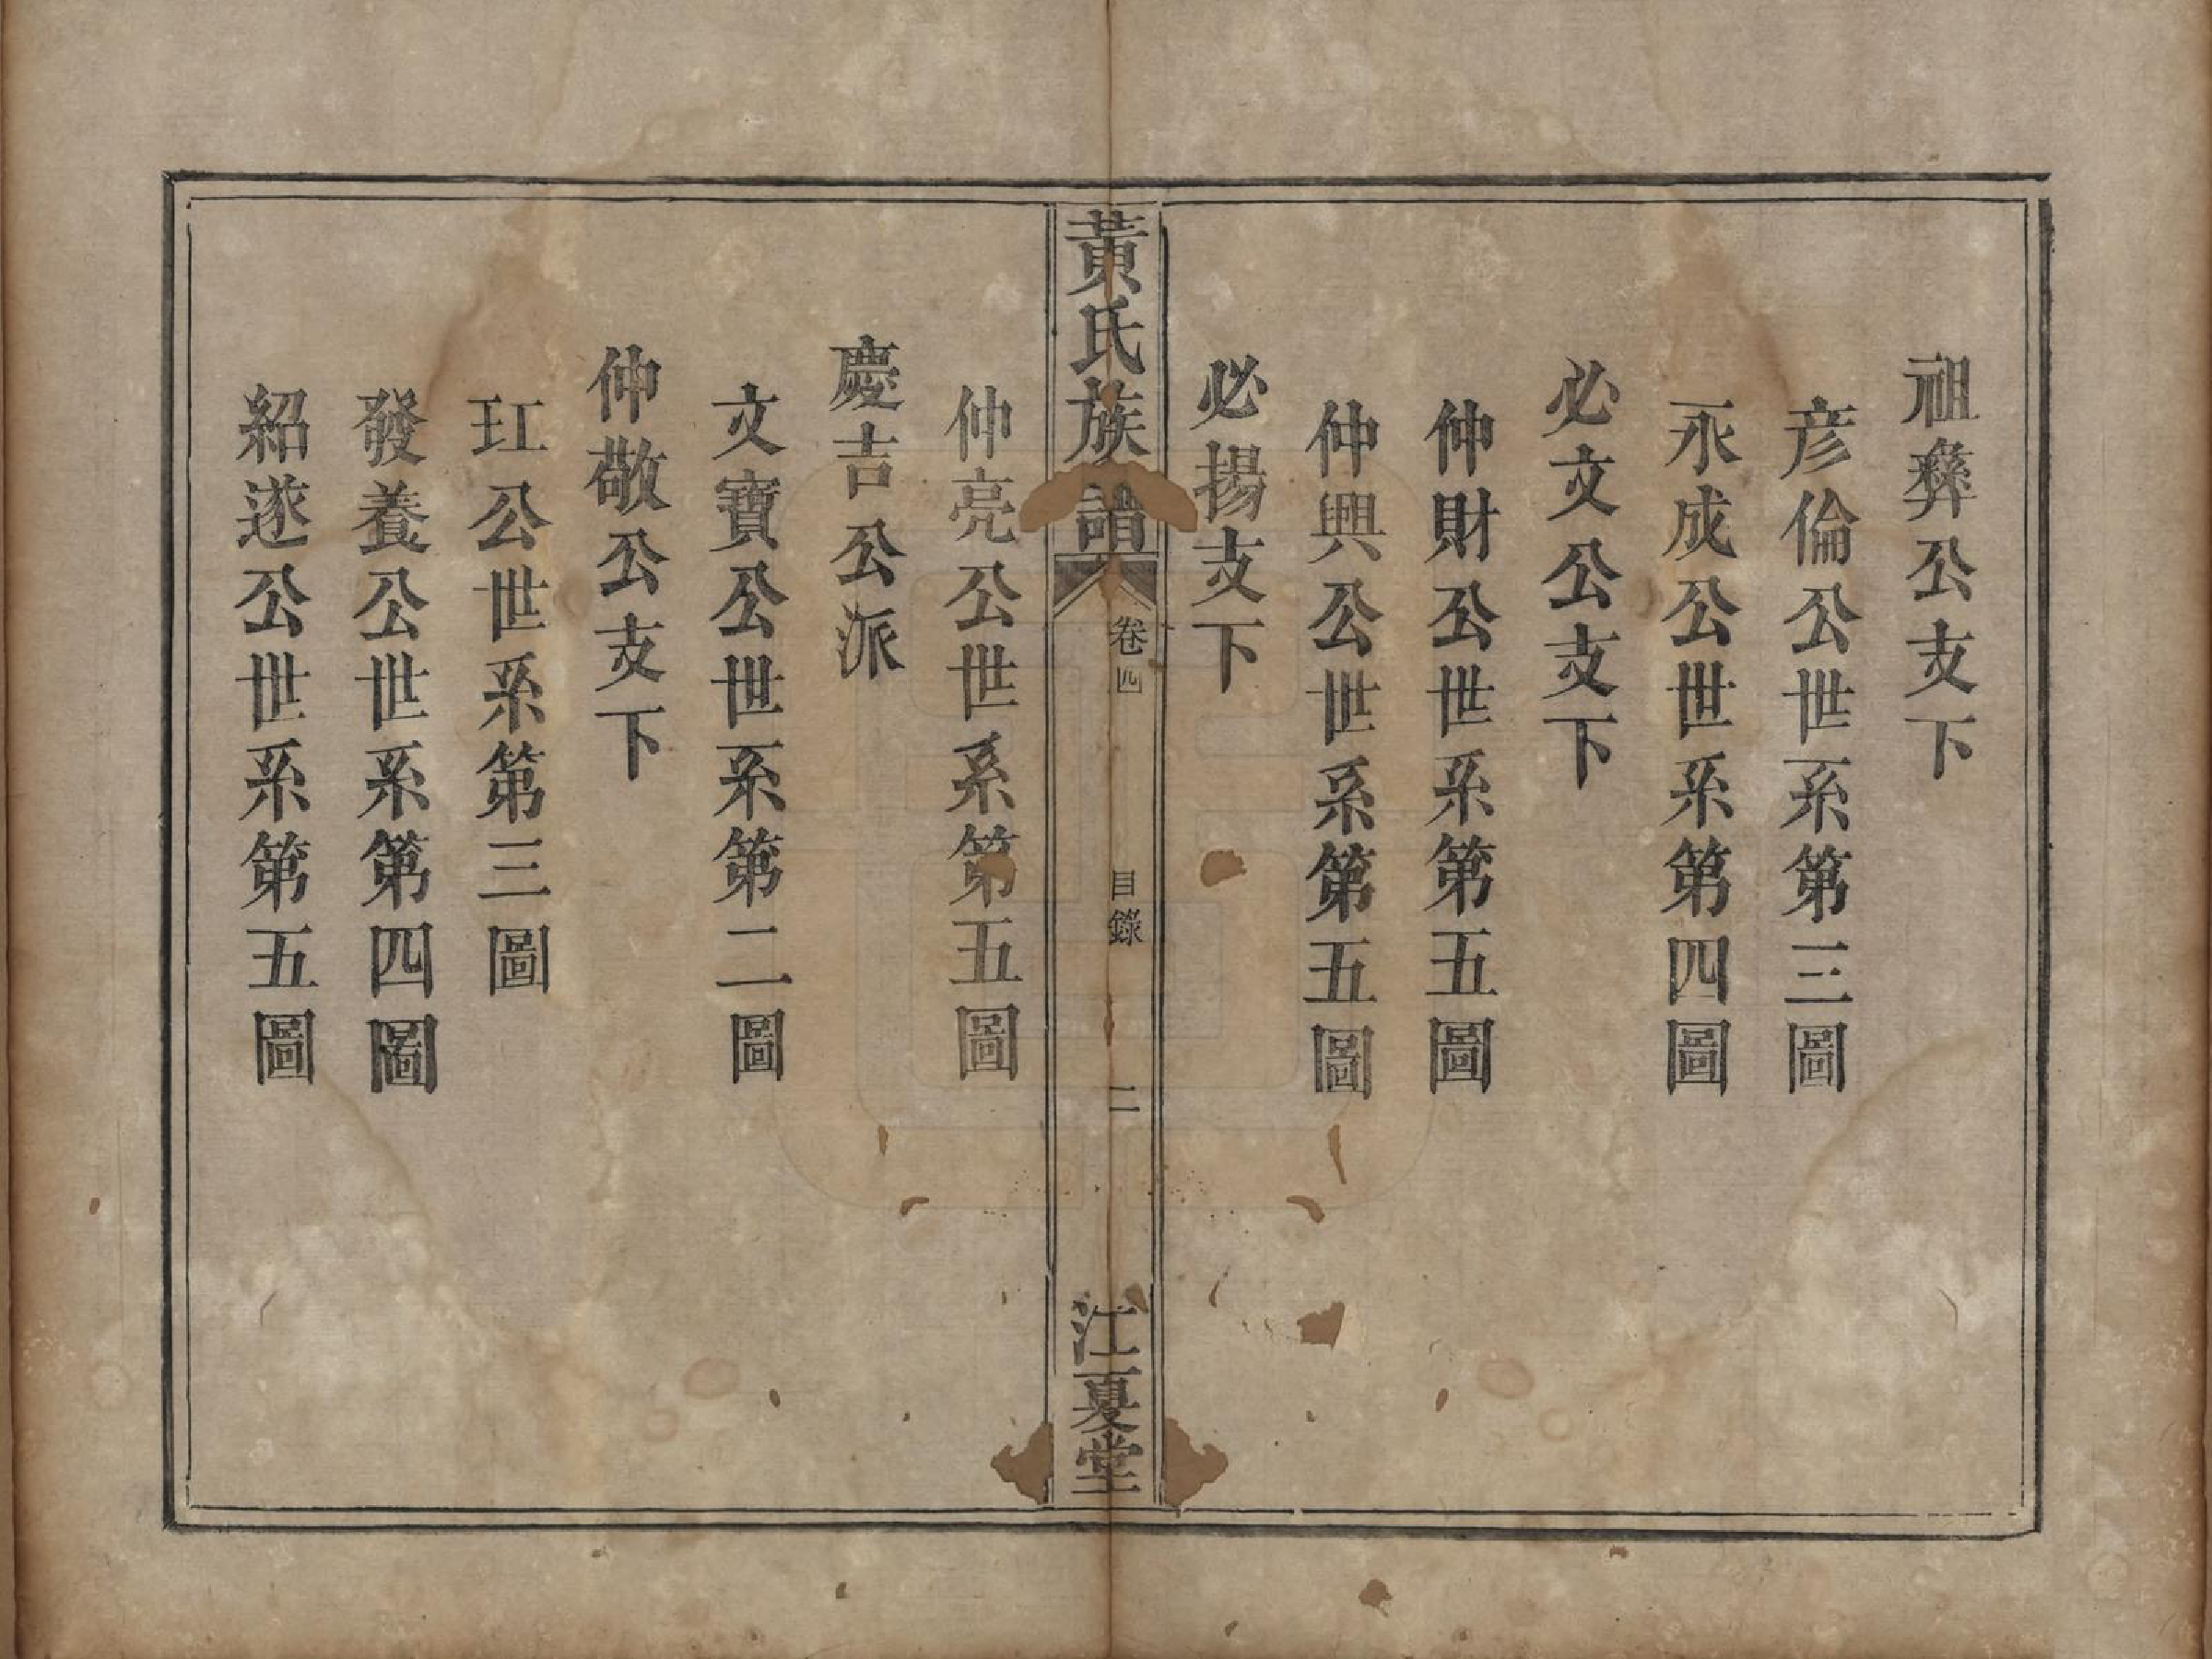 祖彝公支下
彦倫公世系第三圖
永成公世系第四圖
必文公支下
仲財公世系第五圖
仲興公世系第五圖
必揚支下
黃氏族譜
卷四
目錄
二
江夏堂
仲亮公世系第五圖
慶吉公派
文寶公世系第二圖
仲敬公支下
玒公世系第三圖
發養公世系第四圖
紹遂公世系第五圖